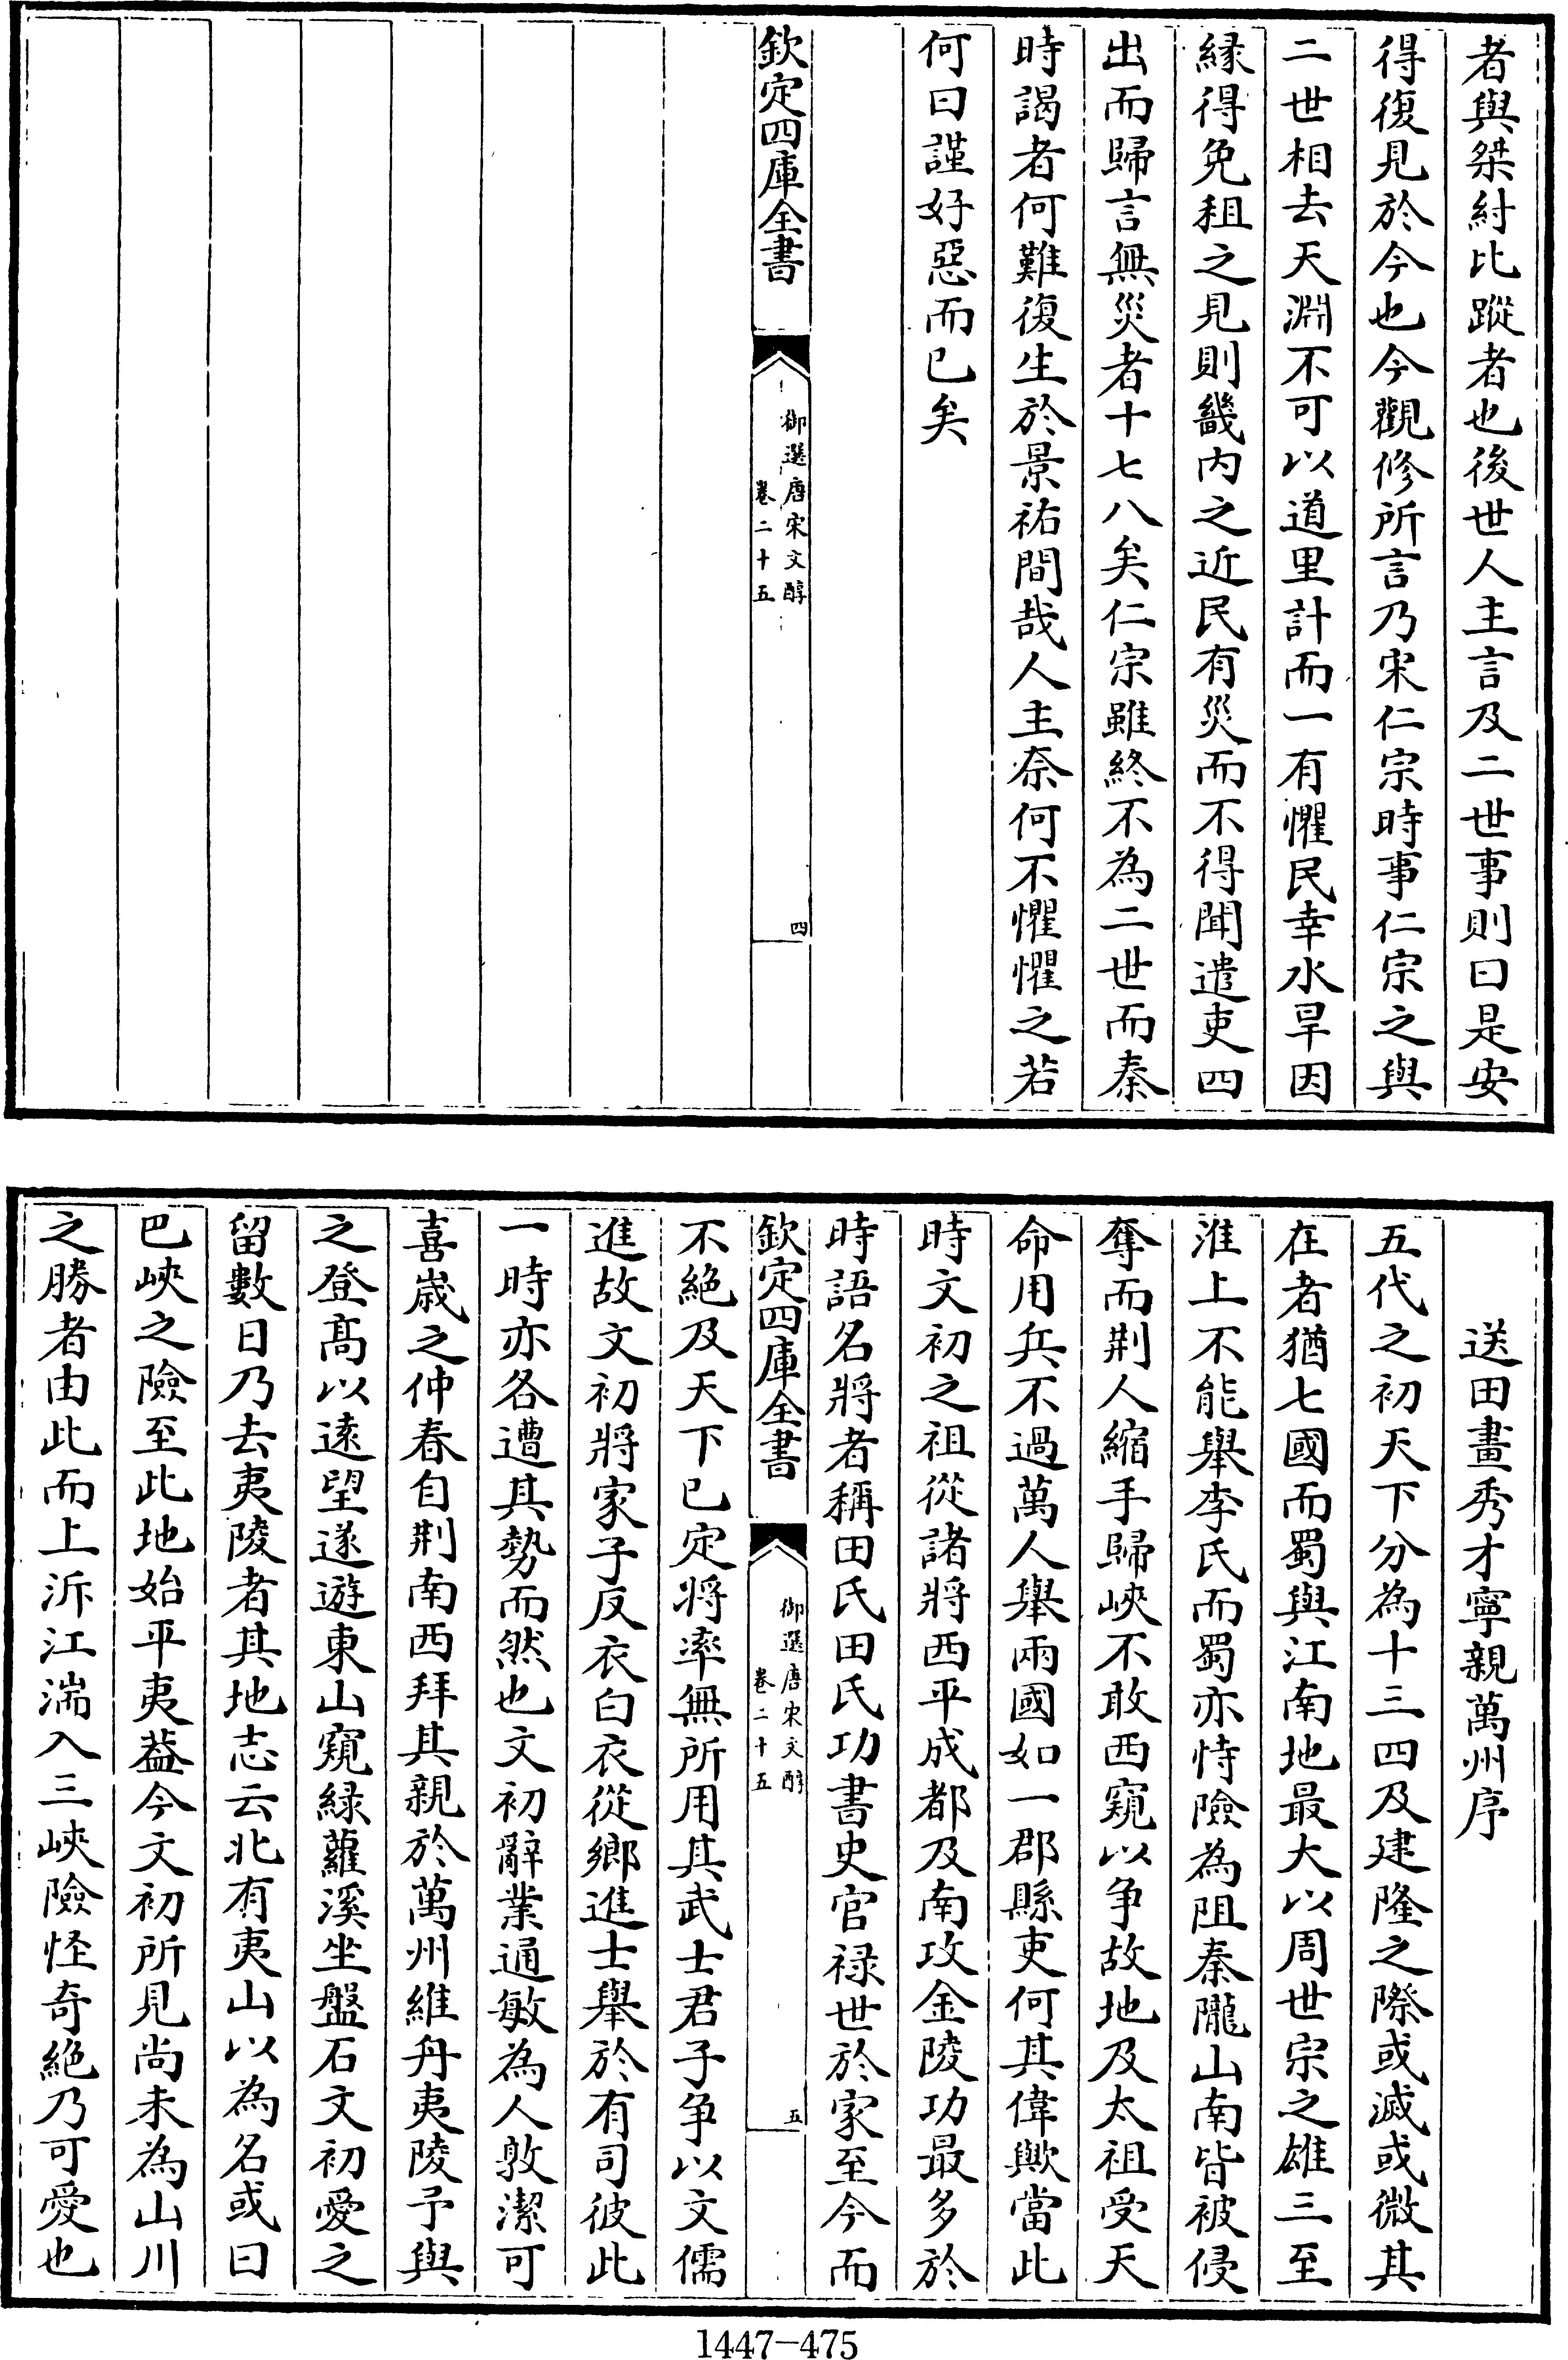 者與桀紂比蹤者也後世人主言及二世事則曰是安
得復見於今也今觀修所言乃宋仁宗時事仁宗之與
二世相去天淵不可以道里計而一有懼民幸水旱因
緣得免租之見則畿内之近民有災而不得聞遣吏四
出而歸言無災者十七八矣仁宗雖終不為二世而秦
時謁者何難復生於景祐間哉人主奈何不懼懼之若
何曰謹好惡而已矣
欽定四庫全書
御選唐宋文醇
卷二十五
四
送田畫秀才寧親萬州序
五代之初天下分為十三四及建隆之際或滅或微其
在者猶七國而蜀與江南地最大以周世宗之雄三至
淮上不能舉李氏而蜀亦恃險為阻秦隴山南皆被侵
奪而荆人縮手歸峽不敢西窺以争故地及太祖受天
命用兵不過萬人舉兩國如一郡縣吏何其偉歟當此
時文初之祖從諸將西平成都及南攻金陵功最多於
時語名將者稱田氏田氏功書史官禄世於家至今而
欽定四庫全書
御選唐宋文醇
卷二十五
五
不絶及天下已定將率無所用其武士君子争以文儒
進故文初將家子反衣白衣從鄉進士舉於有司彼此
一時亦各遭其勢而然也文初辭業通敏為人敦潔可
喜嵗之仲春自荆南西拜其親於萬州維舟夷陵予與
之登髙以遠望遂遊東山窺緑蘿溪坐盤石文初愛之
留數日乃去夷陵者其地志云北有夷山以為名或曰
巴峽之險至此地始平夷葢今文初所見尚未為山川
之勝者由此而上泝江湍入三峽險怪奇絶乃可愛也
1447-475